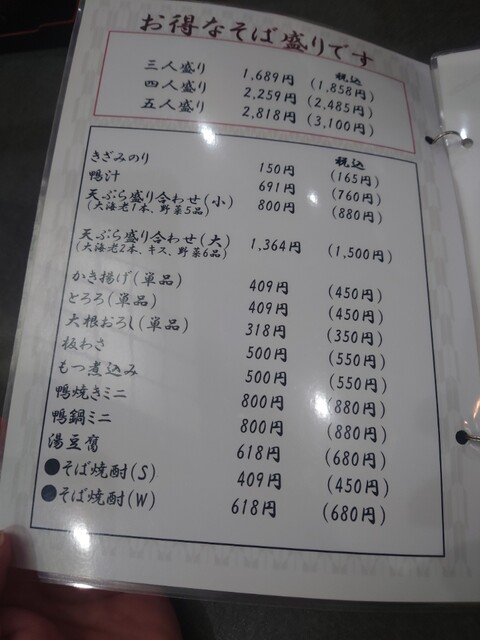 お得なそば盛りです
税込
三人盛り 1,689円 (1,858円)
四人盛り 2,259円 (2,485円)
五人盛り 2,818円 (3,100円)
税込
きざみのり 150円 (165円)
鴨汁 691円 (760円)
天ぷら盛り合わせ(小) 800円 (880円)
(大海老1本、野菜5品)
天ぷら盛り合わせ(大) 1,364円 (1,500円)
(大海老2本、キス、野菜6品)
かき揚げ(単品) 409円 (450円)
とろろ(単品) 409円 (450円)
大根おろし(単品) 318円 (350円)
板わさ 500円 (550円)
もつ煮込み 500円 (550円)
鴨焼きミニ 800円 (880円)
鴨鍋ミニ 800円 (880円)
湯豆腐 618円 (680円)
●そば焼酎(S) 409円 (450円)
●そば焼酎(W) 618円 (680円)